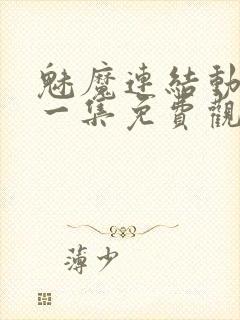 魅魔連結動
一集免費觀
薄少